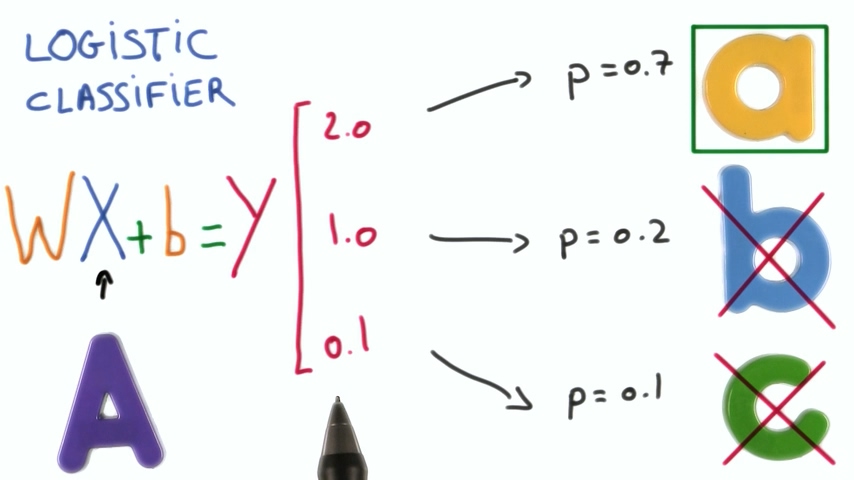 LOGISTIC
CLASSIFIER
WX+b=Y
2.0
1.0
0.1
p=0.7
p=0.2
p=0.1
a
b
c
A